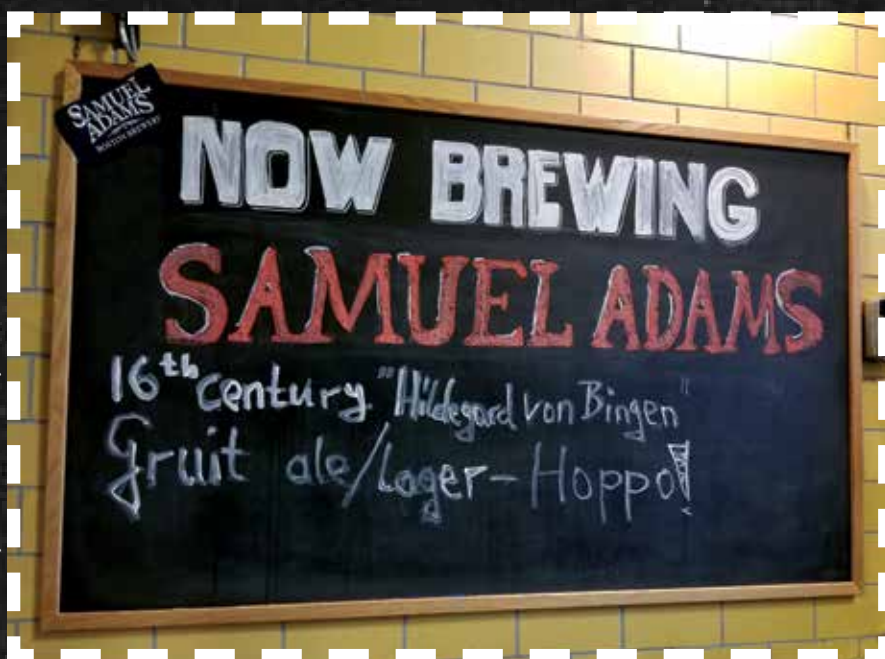 SAMUEL
ADAMS
BOSTON BREWERY
NOW BREWING
SAMUEL ADAMS
16th century "Hildegard von Bingen"
Gruit ale/Lager-Hoppo!